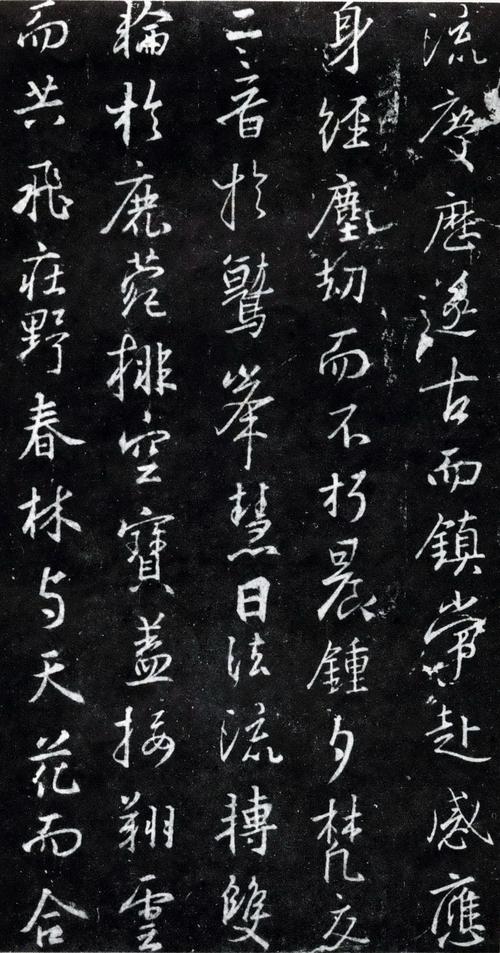 流慶歷遂古而鎮常赴感應
身經塵劫而不朽晨鍾夕梵交
二音於鷲峯慧日法流轉雙
輪於鹿菀排空寶盖接翔雲
而共飛莊野春林与天花而合